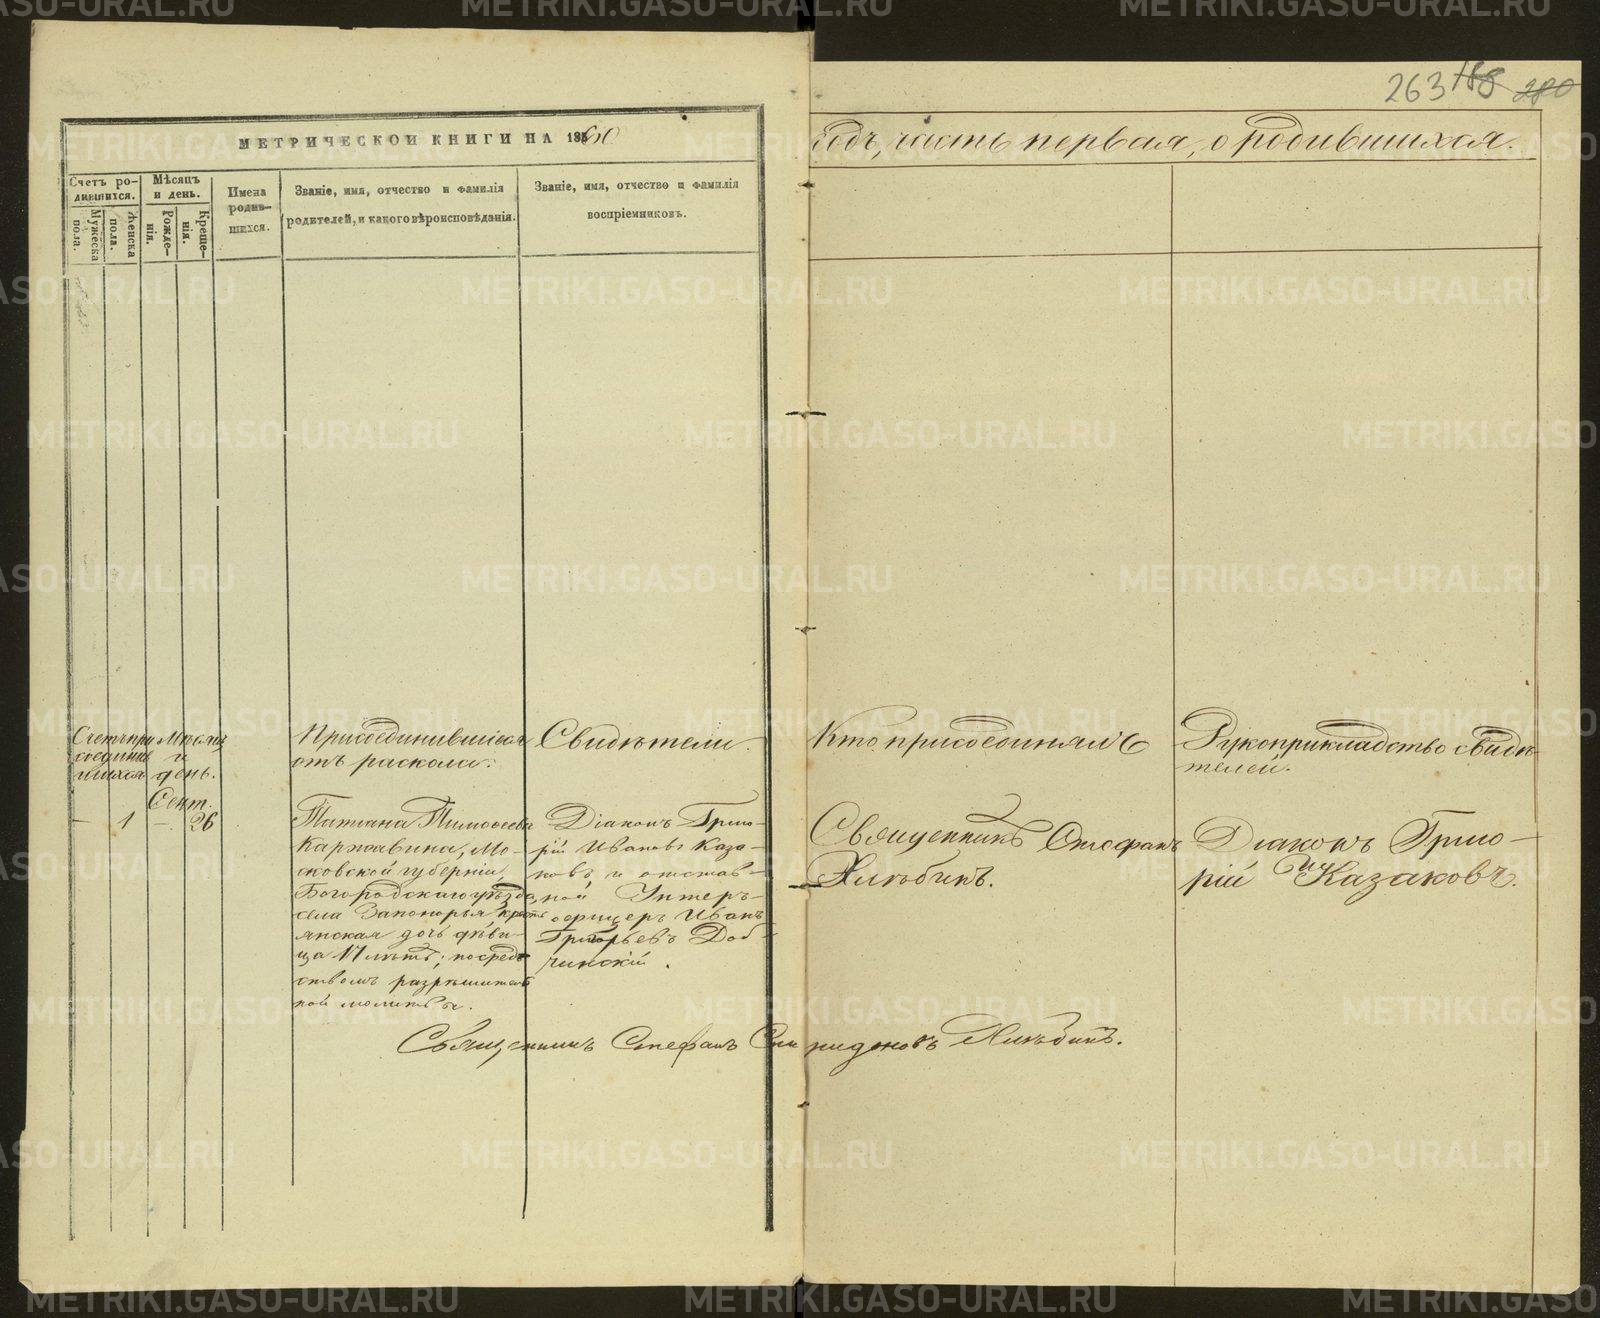 263 188 280
МЕТРИЧЕСКОЙ КНИГИ НА 1860
годъ, часть первая, о родившихся.
Счетъ ро-
дившихся.
Мужеска
пола.
Женска
пола.
Мѣсяцъ
и день.
Рожде-
нія.
Креще-
нія.
Имена
родив-
шихся.
Званіе, имя, отчество и фамилія
родителей, и какого вѣроисповѣданія.
Званіе, имя, отчество и фамилія
воспріемниковъ.
Счетъ при
соедине
ншихся
Мѣсяцъ
и
день.
Присоединившіеся
отъ раскола:
Свидѣтели.
Кто присоединялъ
Рукоприкладство свидѣ-
телей.
Сент.
— 1 — 26
Татіана Тимоѳеева
Каржавина, Мо-
сковской губерніи,
Богородскаго уѣзда,
села Запонорья, кресть
янская дочь дѣви-
ца 17 лѣтъ; посред
ствомъ разрѣшитель
ной молитвы.
Діаконъ Григо-
рій Ивановъ Каза-
ковъ и отстав-
ной Унтеръ-
офицеръ Иванъ
Григорьевъ Доб-
чинскій.
Священникъ Стефанъ
Хлѣбинъ.
Діаконъ Григо-
рій И Казаковъ.
Священникъ Стефанъ Спиридоновъ Хлѣбинъ.
METRIKI.GASO-URAL.RU